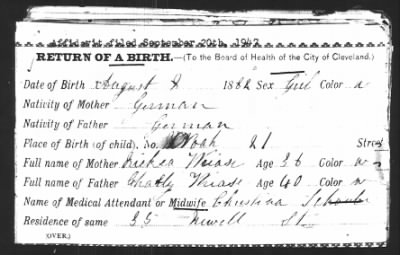 Affidavit filed September 20th, 1947
RETURN OF A BIRTH.—(To the Board of Health of the City of Cleveland.)
Date of Birth August 8 1882 Sex Girl Color w
Nativity of Mother German
Nativity of Father German
Place of Birth (of child). No. Noah 21 Street
Full name of Mother Thiase Age 36 Color w
Full name of Father Charly Thiase Age 40 Color w
Name of Medical Attendant or Midwife Christina
Residence of same 35 Newell St.
(OVER.)